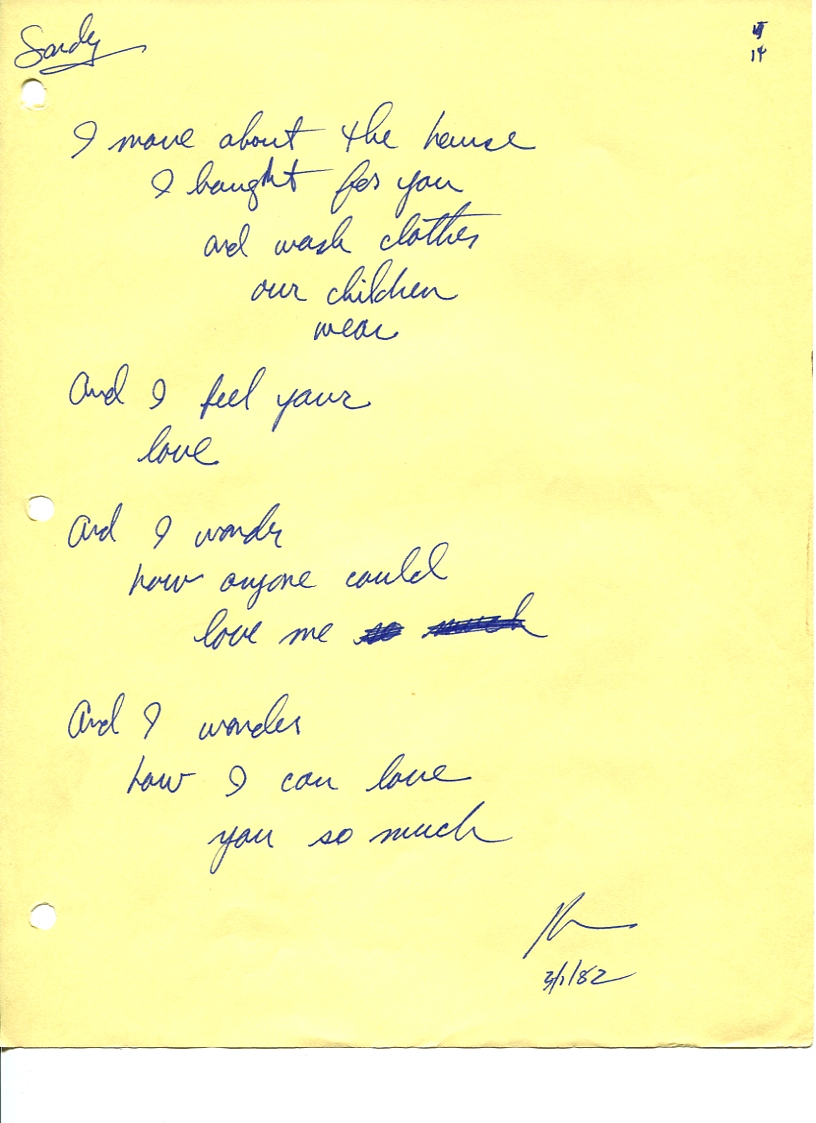 Sandy
14
I move about the house
I bought for you
and wash clothes
our children
wear
And I feel your
love
And I wonder
how anyone could
love me so much
And I wonder
how I can love
you so much
3/1/82